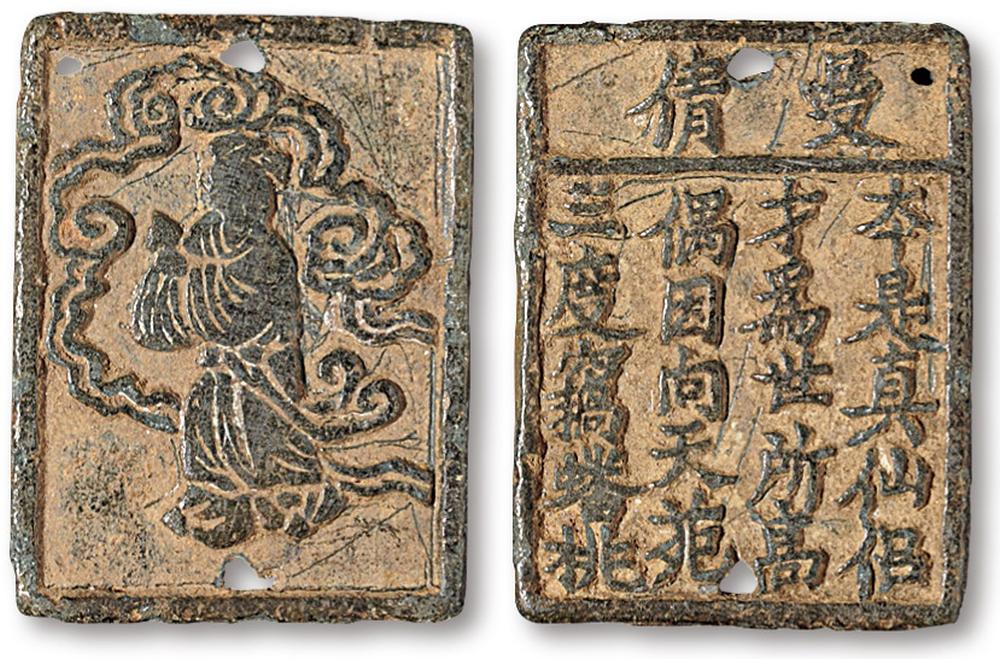 曼倩
夲是真仙侣
才爲世所高
偶因向天苑
三度竊桃